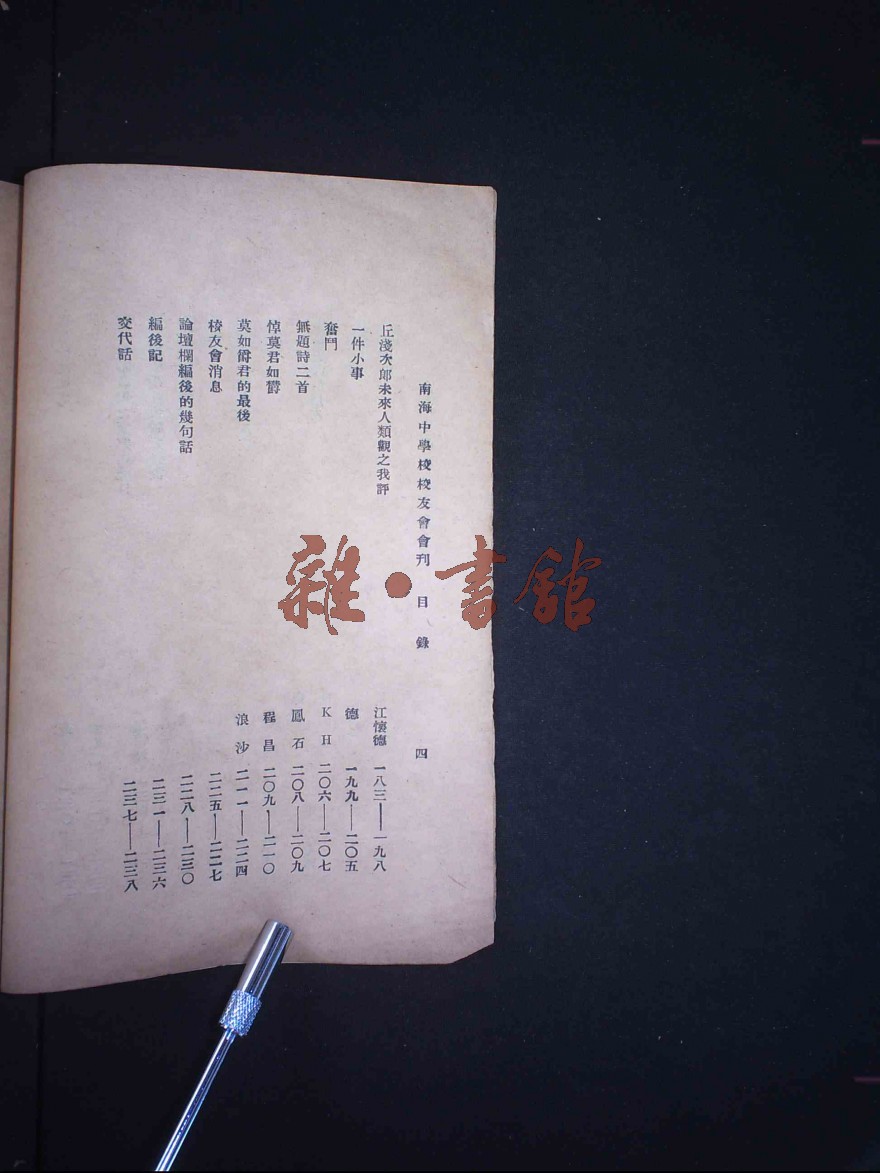 南海中學校校友會會刊 目錄 四
丘淺次郎未來人類觀之我評 江懷德 一八三——一九八
一件小事 德 一九九——二〇五
奮鬥 K H 二〇六——二〇七
無題詩二首 鳳石 二〇八——二〇九
悼莫君如欝 程昌 二〇九——二一〇
莫如爵君的最後 浪沙 二一一——二二四
校友會消息 二二五——二二七
論壇欄編後的幾句話 二二八——二三〇
編後記 二三一——二三六
交代話 二三七——二三八
雜·書館